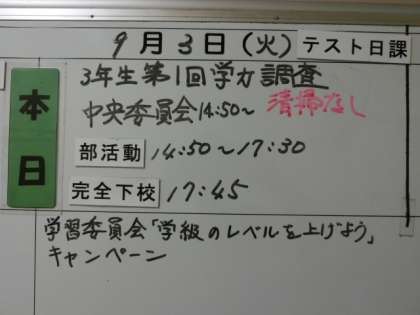 9月3日(火) テスト日課
本日
3年生第1回学力調査
中央委員会14:50～ 清掃なし
部活動 14:50～17:30
完全下校 17:45
学習委員会「学級のレベルを上げよう」
キャンペーン